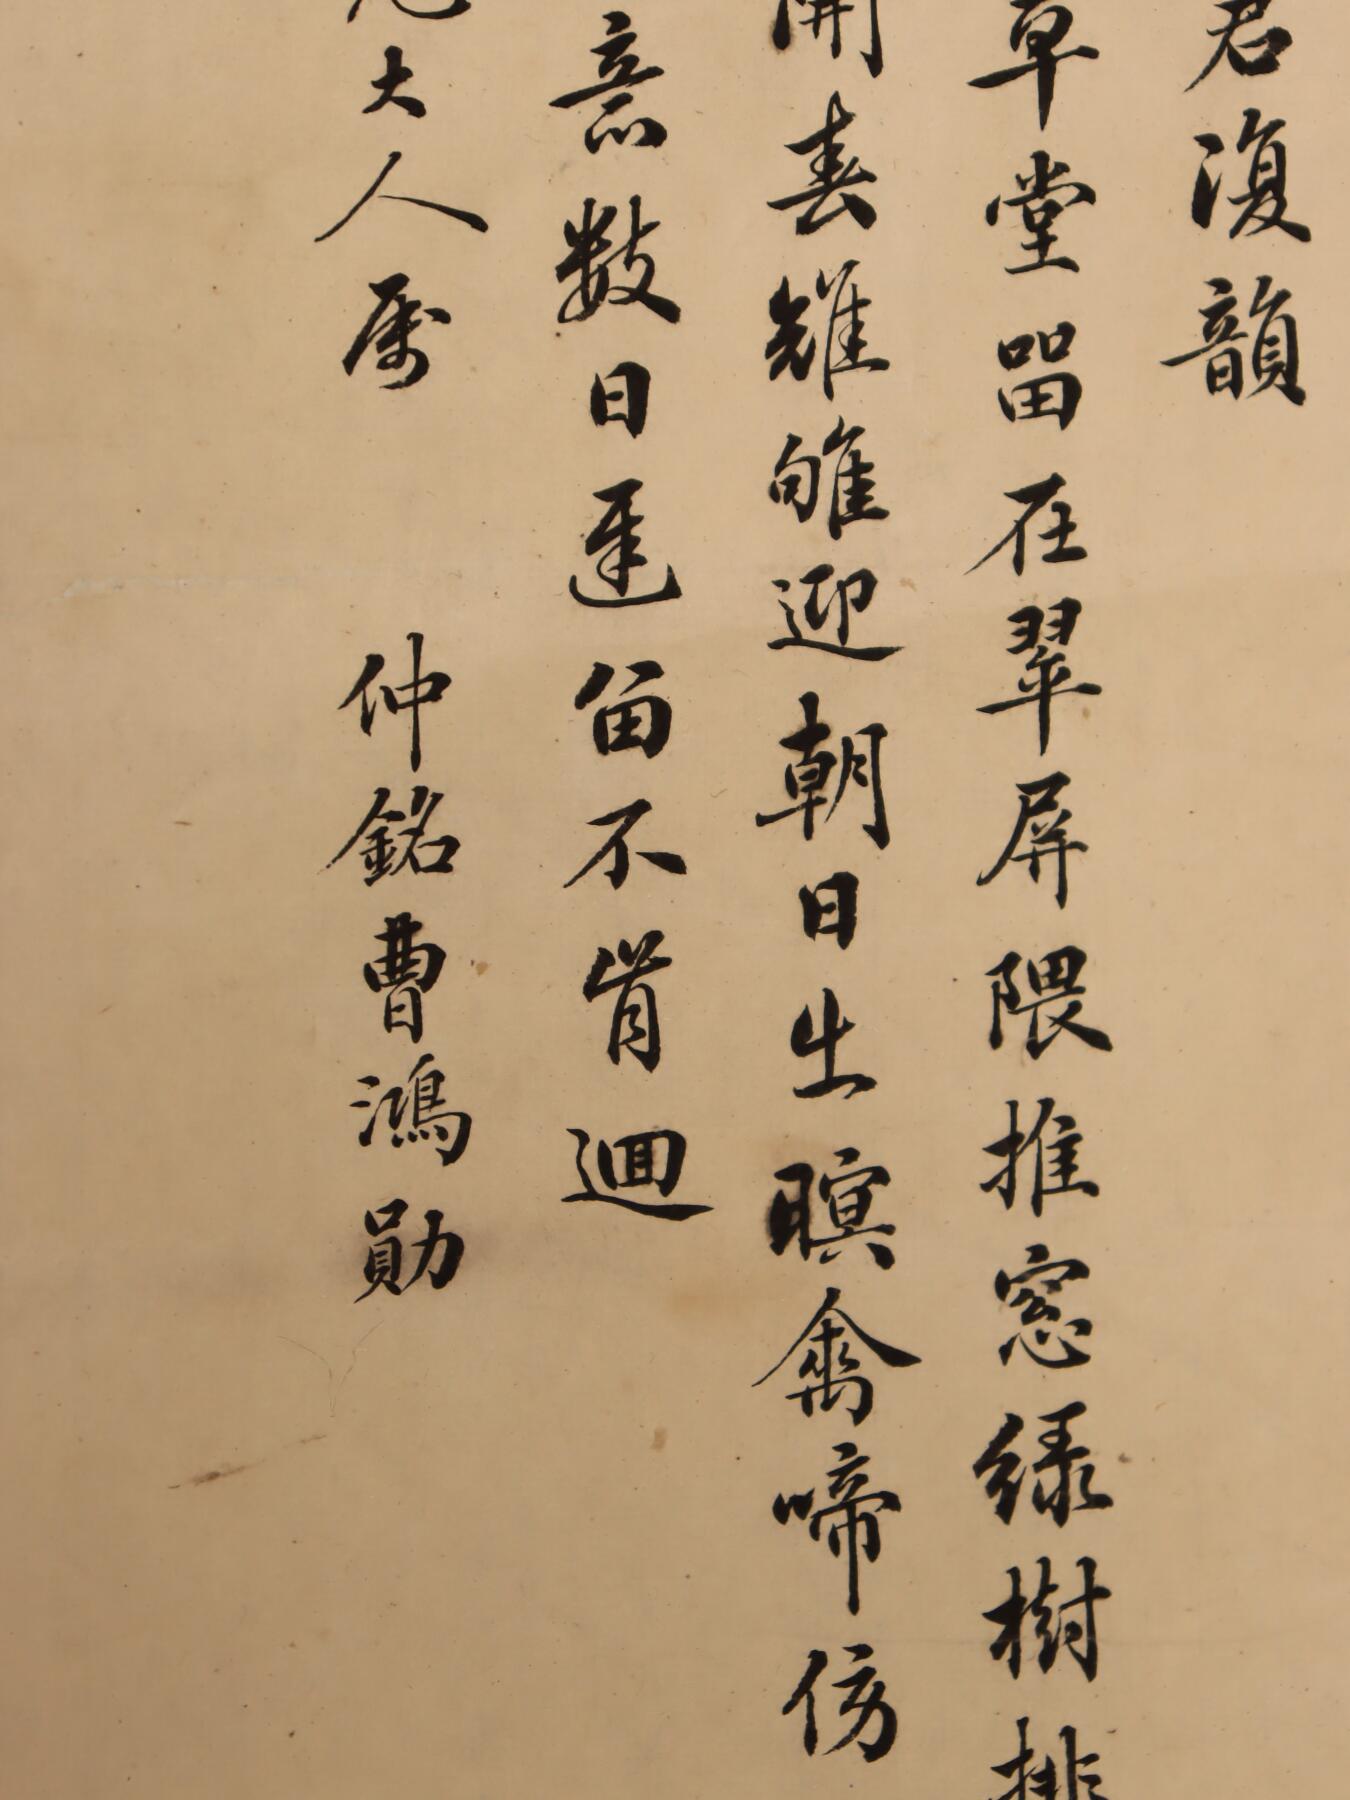 君復韻
草堂留在翠屏隈推窓綠樹排
開春雉雊迎朝日生暝禽啼傍
意數日遲留不肯迴
大人属 仲銘曹鴻勛